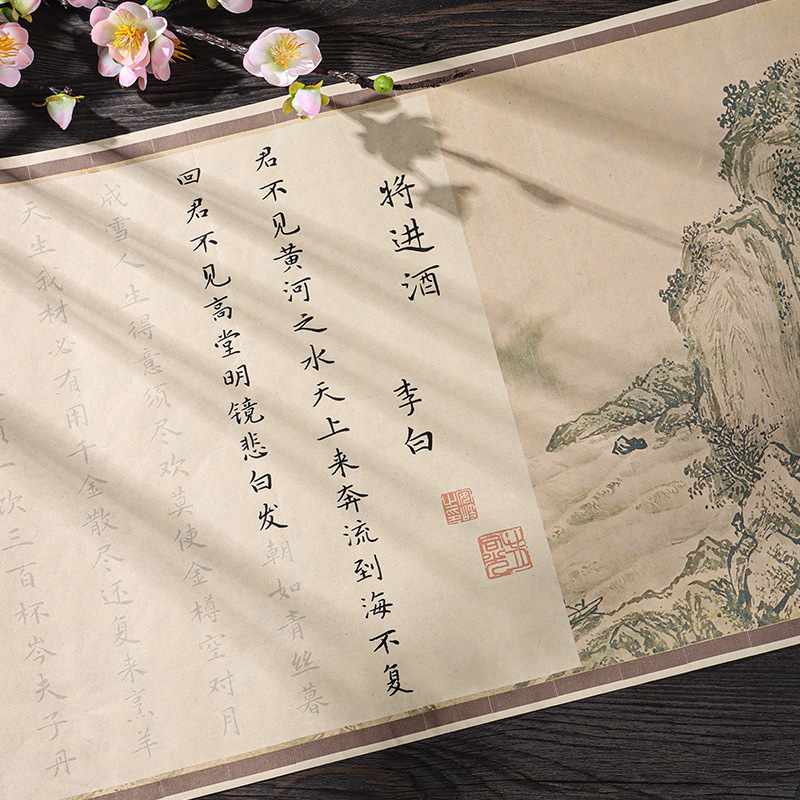 将进酒 李白
君不见黄河之水天上来奔流到海不复
回君不见高堂明镜悲白发朝如青丝暮
成雪人生得意须尽欢莫使金樽空对月
天生我材必有用千金散尽还复来烹羊
饮三百杯岑夫子丹